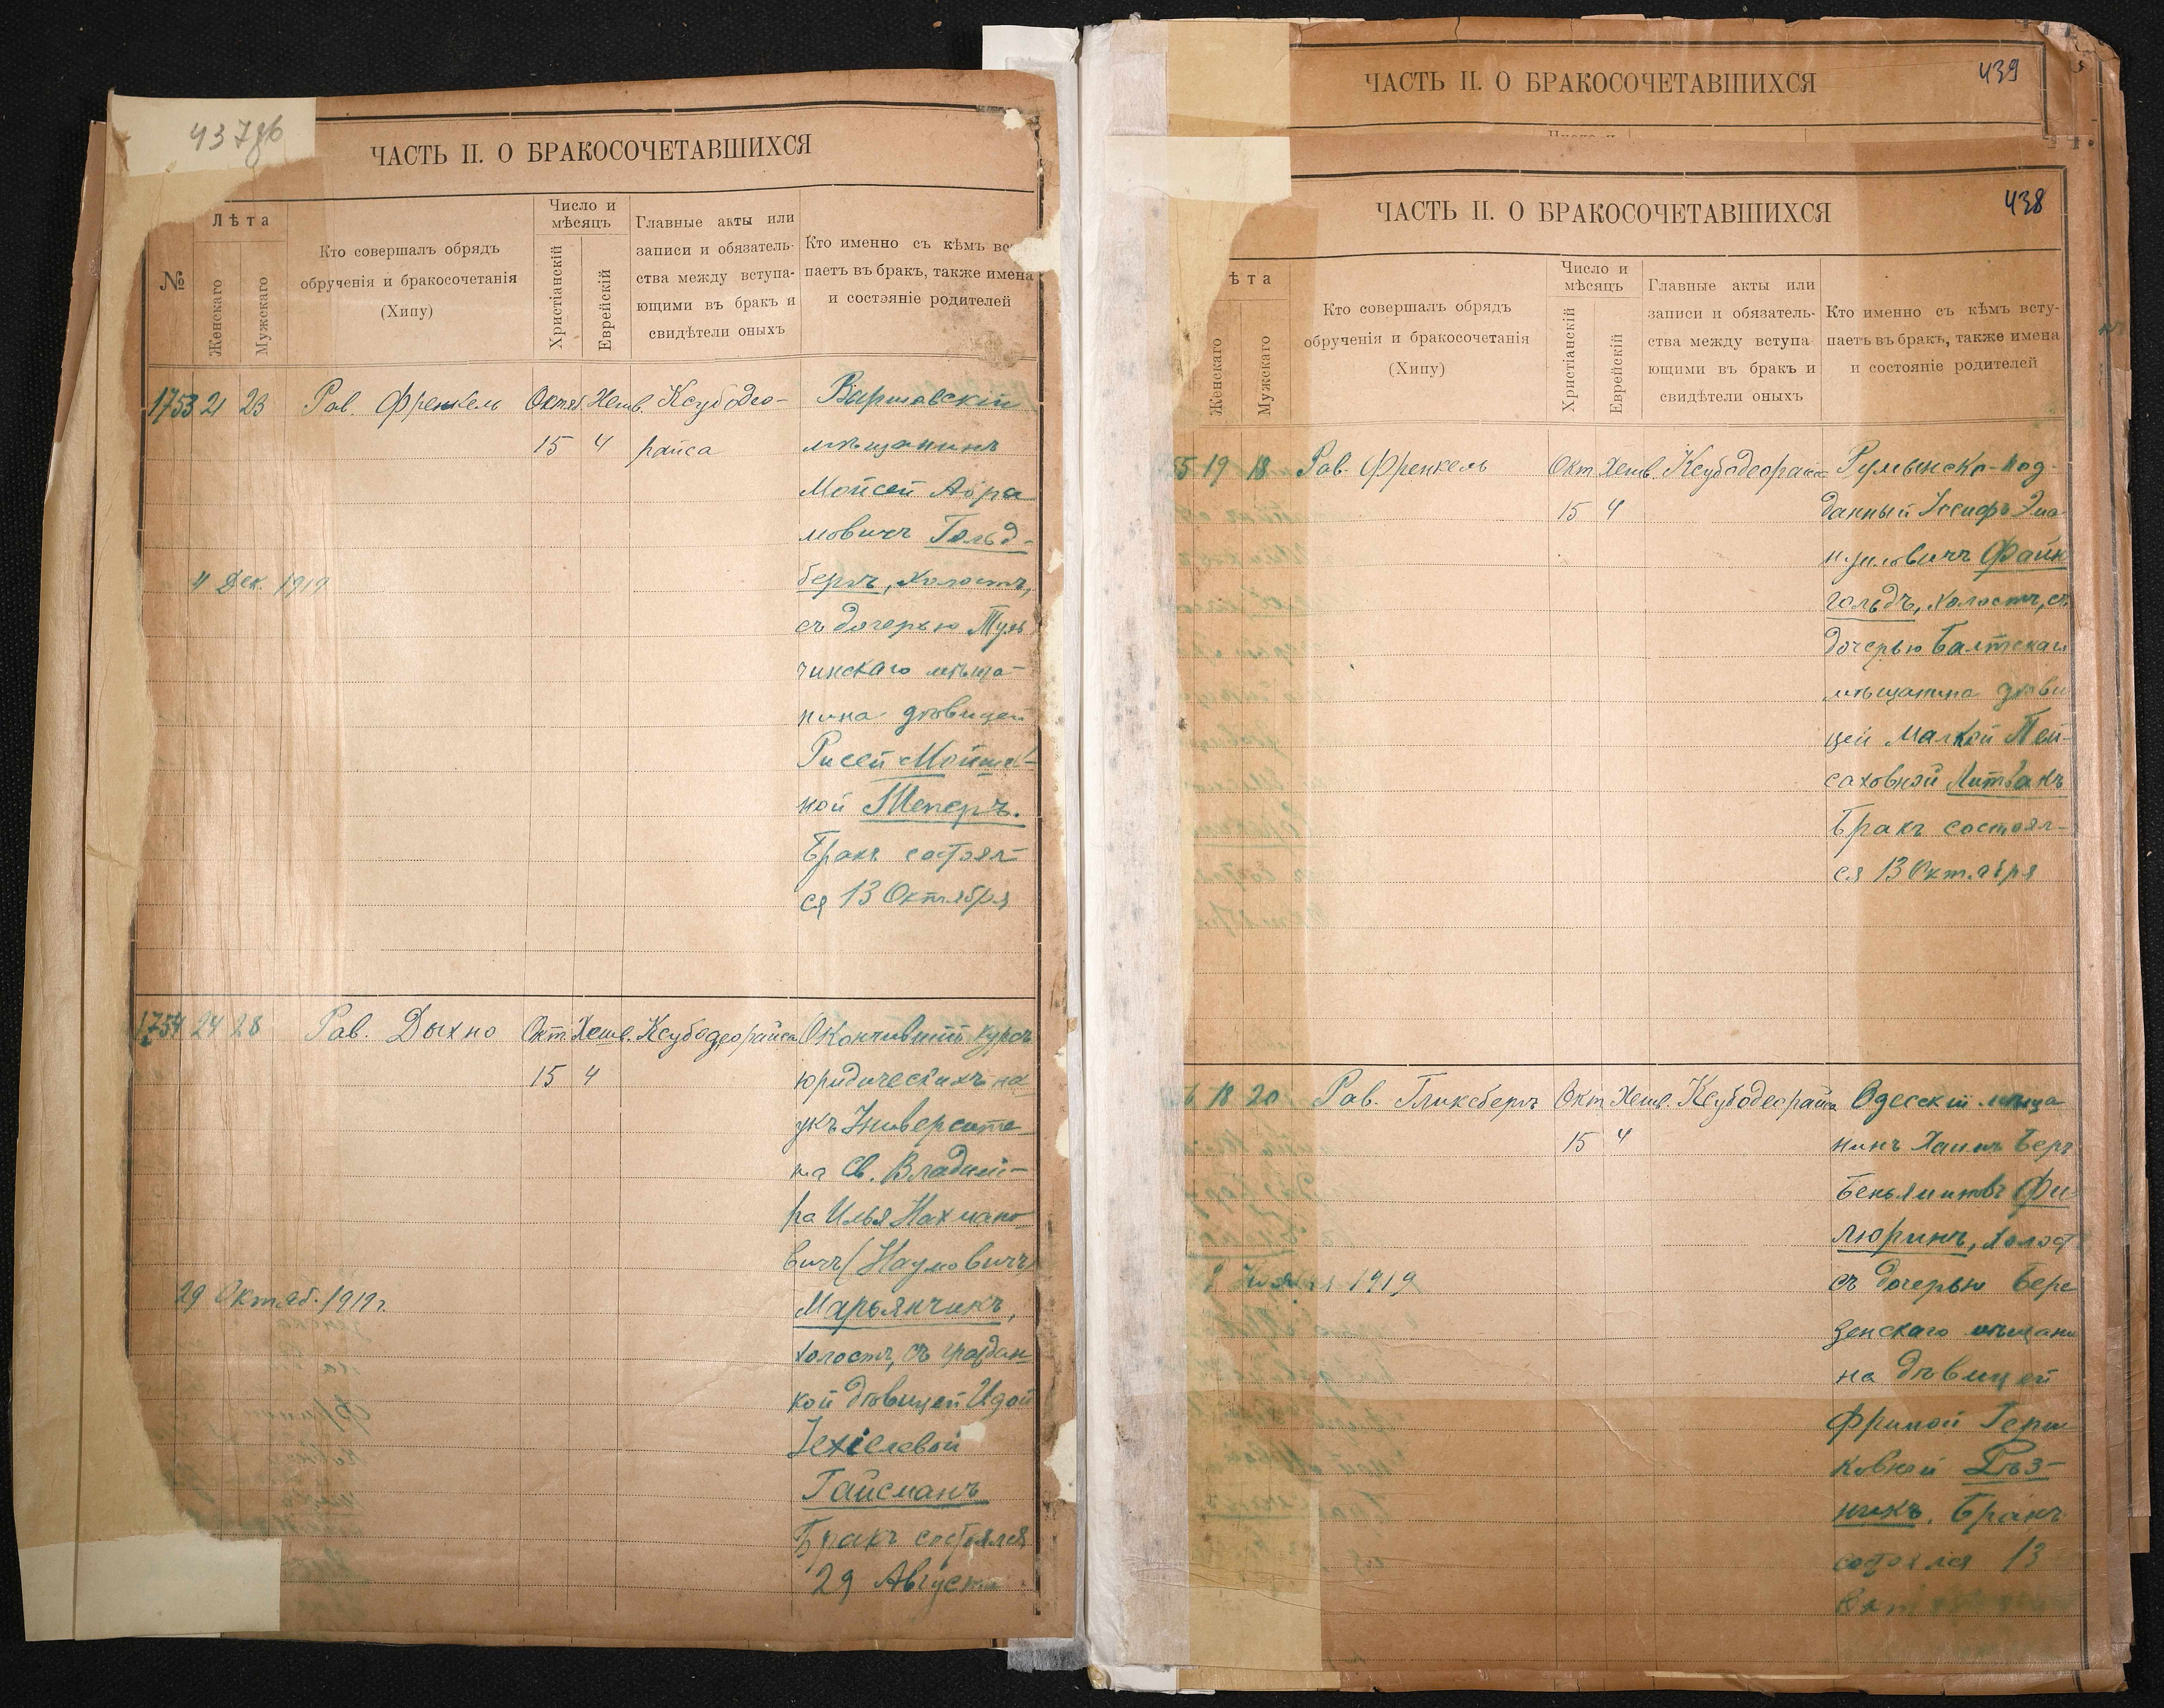 437об
ЧАСТЬ II. О БРАКОСОЧЕТАВШИХСЯ
№
Лѣта
Женскаго
Мужскаго
Кто совершалъ обрядъ
обрученія и бракосочетанія
(Хипу)
Число и
мѣсяцъ
Христіанскій
Еврейскій
Главные акты или
записи и обязатель-
ства между вступа-
ющими въ бракъ и
свидѣтели оныхъ
Кто именно съ кѣмъ вс
паетъ въ бракъ, также имена
и состояніе родителей
1753 21 23 Рав. Френкель Октяб. Хешв. Ксубодео- Варшавскій
15 4 райса мѣщанинъ
Мойсей Абра
мовичъ Гольд-
4 Дек. 1919 бергъ, холостъ,
съ дочерью Туль
чинскаго мѣща-
нина дѣвицей
Рисей Мойше-
ной Теперъ.
Бракъ состоял-
ся 13 Октября
1754 24 28 Рав. Дыхно Окт. Хешв. Ксубодеорайса Окончившій курсъ
15 4 юридическихъ на
укъ Университе
та Св. Владими-
ра Илья Нахмано
вичъ (Наумовичъ)
29 Октяб. 1919г. Марьянчикъ,
холостъ, съ граждан
кой дѣвицей Идой
Іехіелевой
Гайсманъ
Бракъ состоялся
29 Августа
439
ЧАСТЬ II. О БРАКОСОЧЕТАВШИХСЯ
Число и
438
ЧАСТЬ II. О БРАКОСОЧЕТАВШИХСЯ
ѣта
Женскаго
Мужскаго
Кто совершалъ обрядъ
обрученія и бракосочетанія
(Хипу)
Число и
мѣсяцъ
Христіанскій
Еврейскій
Главные акты или
записи и обязатель-
ства между вступа
ющими въ бракъ и
свидѣтели оныхъ
Кто именно съ кѣмъ всту-
паетъ въ бракъ, также имена
и состояніе родителей
55 19 18 Рав. Френкель Окт. Хешв. Ксубодеорайс Румынско-под-
15 4 данный Іосифъ Эма
нуиловичъ Файн
гольдъ, холостъ, съ
дочерью Балтскаго
мѣщанина дѣви
цей Малкой Пей-
саховной Литвакъ
Бракъ состоял-
ся 13 Октября
6 18 20 Рав. Гликсбергъ Окт. Хешв. Ксубодеорайса Одесскій мѣща
15 4 нинъ Хаимъ Беръ
Беньяминовъ Фи-
люринъ, холост
2 Ноября 1919 съ дочерью Бере
зенскаго мѣщани
на дѣвицей
Фримой Герш
ковной Рѣз-
никъ. Бракъ
состоялся 13
Окт